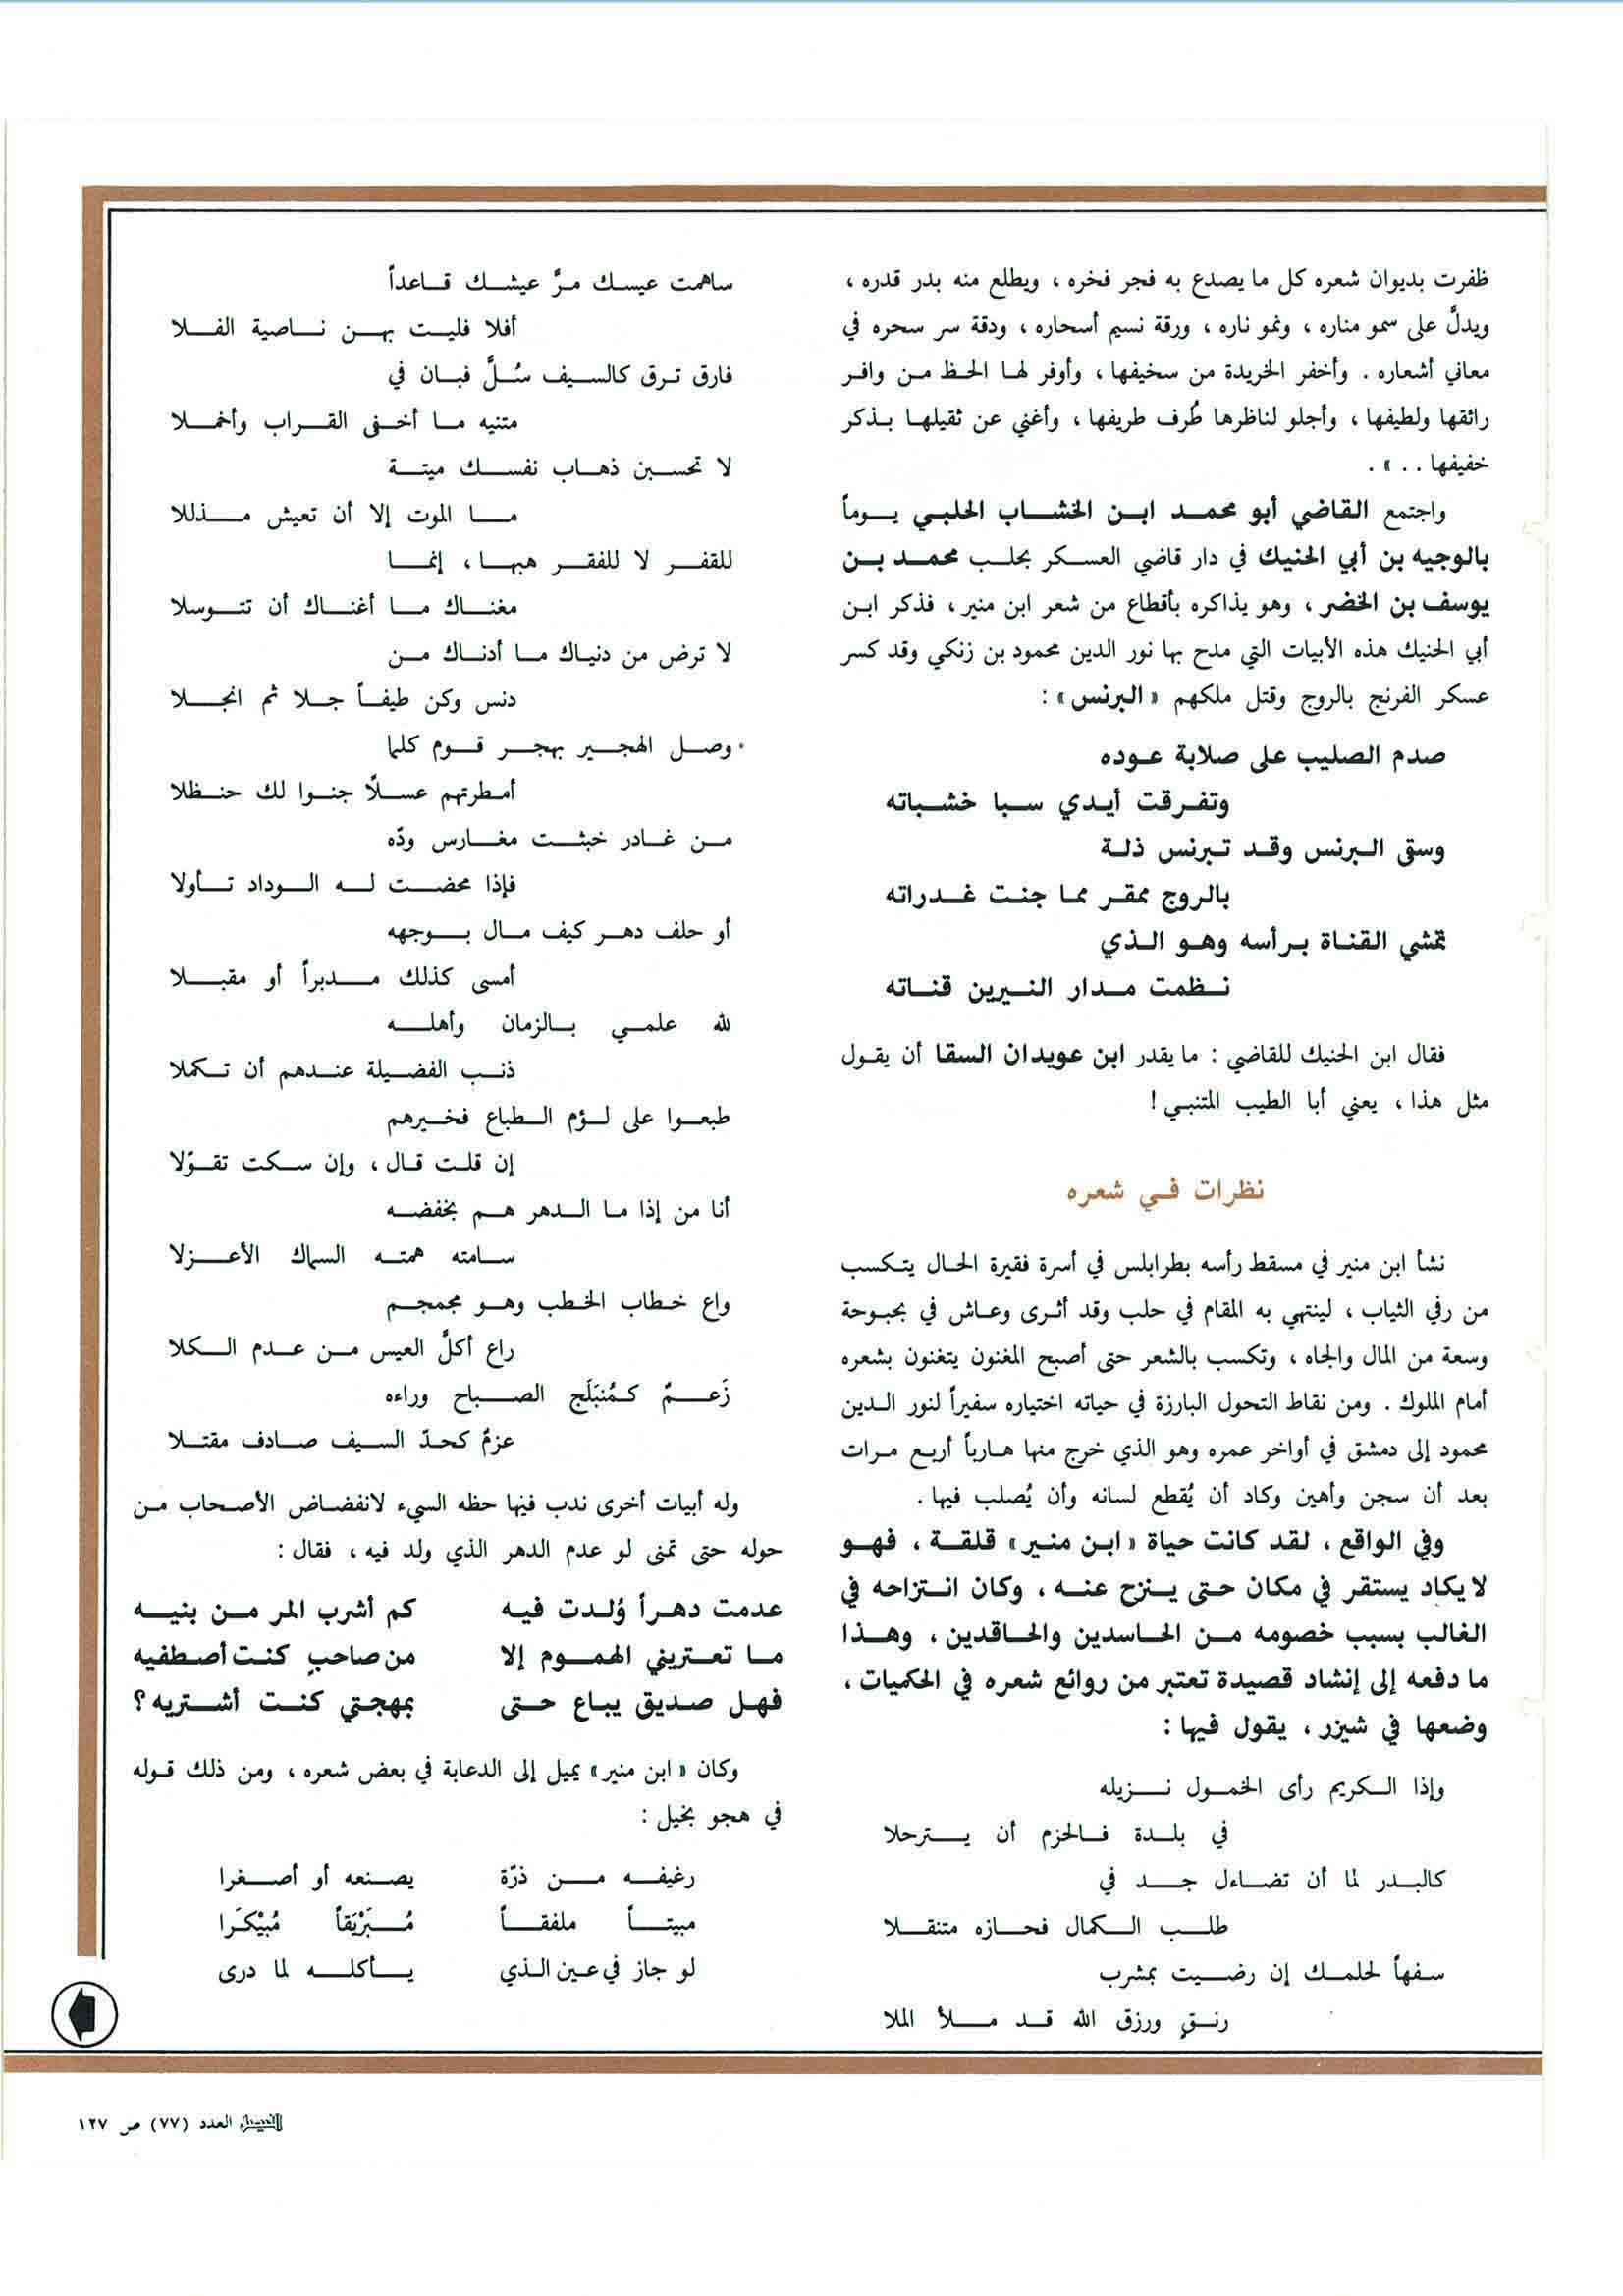 ظفرت بديوان شعره كل ما يصدع به فجر فخره ، ويطلع منه بدر قدره ،
ويدلَّ على سمو مناره ، ونمو ناره ، ورقة نسيم أسحاره ، ودقة سر سحره في
معاني أشعاره . وأخفر الخريدة من سخيفها ، وأوفر لها الحظ من وافر
رائقها ولطيفها ، وأجلو لناظرها طُرف طريفها ، وأغني عن ثقيلها بذكر
خفيفها . . » .
واجتمع القاضي أبو محمد ابن الخشاب الحلبي يوماً
بالوجيه بن أبي الحنيك في دار قاضي العسكر بحلب محمد بن
يوسف بن الخضر ، وهو يذاكره بأقطاع من شعر ابن منير ، فذكر ابن
أبي الحنيك هذه الأبيات التي مدح بها نور الدين محمود بن زنكي وقد كسر
عسكر الفرنج بالروج وقتل ملكهم « البرنس » :
صدم الصليب على صلابة عوده
وتفرقت أيدي سبا خشباته
وسقى البرنس وقد تبرنس ذلة
بالروج ممقر مما جنت غدراته
تمشي القناة برأسه وهو الذي
نظمت مدار النيرين قناته
فقال ابن الحنيك للقاضي : ما يقدر ابن عويدان السقا أن يقول
مثل هذا ، يعني أبا الطيب المتنبي !
نظرات في شعره
نشأ ابن منير في مسقط رأسه بطرابلس في أسرة فقيرة الحال يتكسب
من رفي الثياب ، لينتهي به المقام في حلب وقد أثرى وعاش في بحبوحة
وسعة من المال والجاه ، وتكسب بالشعر حتى أصبح المغنون يتغنون بشعره
أمام الملوك . ومن نقاط التحول البارزة في حياته اختياره سفيراً لنور الدين
محمود إلى دمشق في أواخر عمره وهو الذي خرج منها هارباً أربع مرات
بعد أن سجن وأهين وكاد أن يُقطع لسانه وأن يُصلب فيها .
وفي الواقع ، لقد كانت حياة « ابن منير » قلقة ، فهو
لا يكاد يستقر في مكان حتى ينزح عنه ، وكان انتزاحه في
الغالب بسبب خصومه من الحاسدين والحاقدين ، وهذا
ما دفعه إلى إنشاد قصيدة تعتبر من روائع شعره في الحكميات ،
وضعها في شيزر ، يقول فيها :
وإذا الكريم رأى الخمول نزيله
في بلدة فالحزم أن يترحلا
كالبدر لما أن تضاءل جد في
طلب الكمال فحازه متنقلا
سفهاً لحلمك إن رضيت بمشرب
رنق ورزق الله قد ملأ الملا
ساهمت عيسك مرَّ عيشك قاعداً
أفلا فليت بهن ناصية الفلا
فارق ترق كالسيف سُلَّ فبان في
متنيه ما أخفى القراب وأخملا
لا تحسبن ذهاب نفسك ميتة
ما الموت إلا أن تعيش مذللا
للقفر لا للفقر هبها ، إنما
مغناك ما أغناك أن تتوسلا
لا ترض من دنياك ما أدناك من
دنس وكن طيفاً جلا ثم انجلا
وصل الهجير بهجر قوم كلما
أمطرتهم عسلاً جنوا لك حنظلا
من غادر خبثت مغارس ودّه
فإذا محضت له الوداد تأولا
أو حلف دهر كيف مال بوجهه
أمسى كذلك مدبراً أو مقبلا
لله علمي بالزمان وأهله
ذنب الفضيلة عندهم أن تكملا
طبعوا على لؤم الطباع فخيرهم
إن قلت قال ، وإن سكت تقوّلا
أنا من إذا ما الدهر هم بخفضه
سامته همته السماك الأعزلا
واع خطاب الخطب وهو مجمجم
راع أكلَّ العيس من عدم الكلا
زَعمٌ كمُنبَلَج الصباح وراءه
عزمٌ كحدّ السيف صادف مقتلا
وله أبيات أخرى ندب فيها حظه السيء لانفضاض الأصحاب من
حوله حتى تمنى لو عدم الدهر الذي ولد فيه ، فقال :
عدمت دهراً وُلدت فيه كم أشرب المر من بنيه
ما تعتريني الهموم إلا من صاحبٍ كنت أصطفيه
فهل صديق يباع حتى بمهجتي كنت أشتريه ؟
وكان « ابن منير » يميل إلى الدعابة في بعض شعره ، ومن ذلك قوله
في هجو بخيل :
رغيفه من ذرّة يصنعه أو أصغرا
مبيتاً ملفقاً مُبَرْيَقاً مُبَيْكَرا
لو جاز في عين الذي يأكله لما درى
الفيصل العدد (٧٧) ص ١٢٧